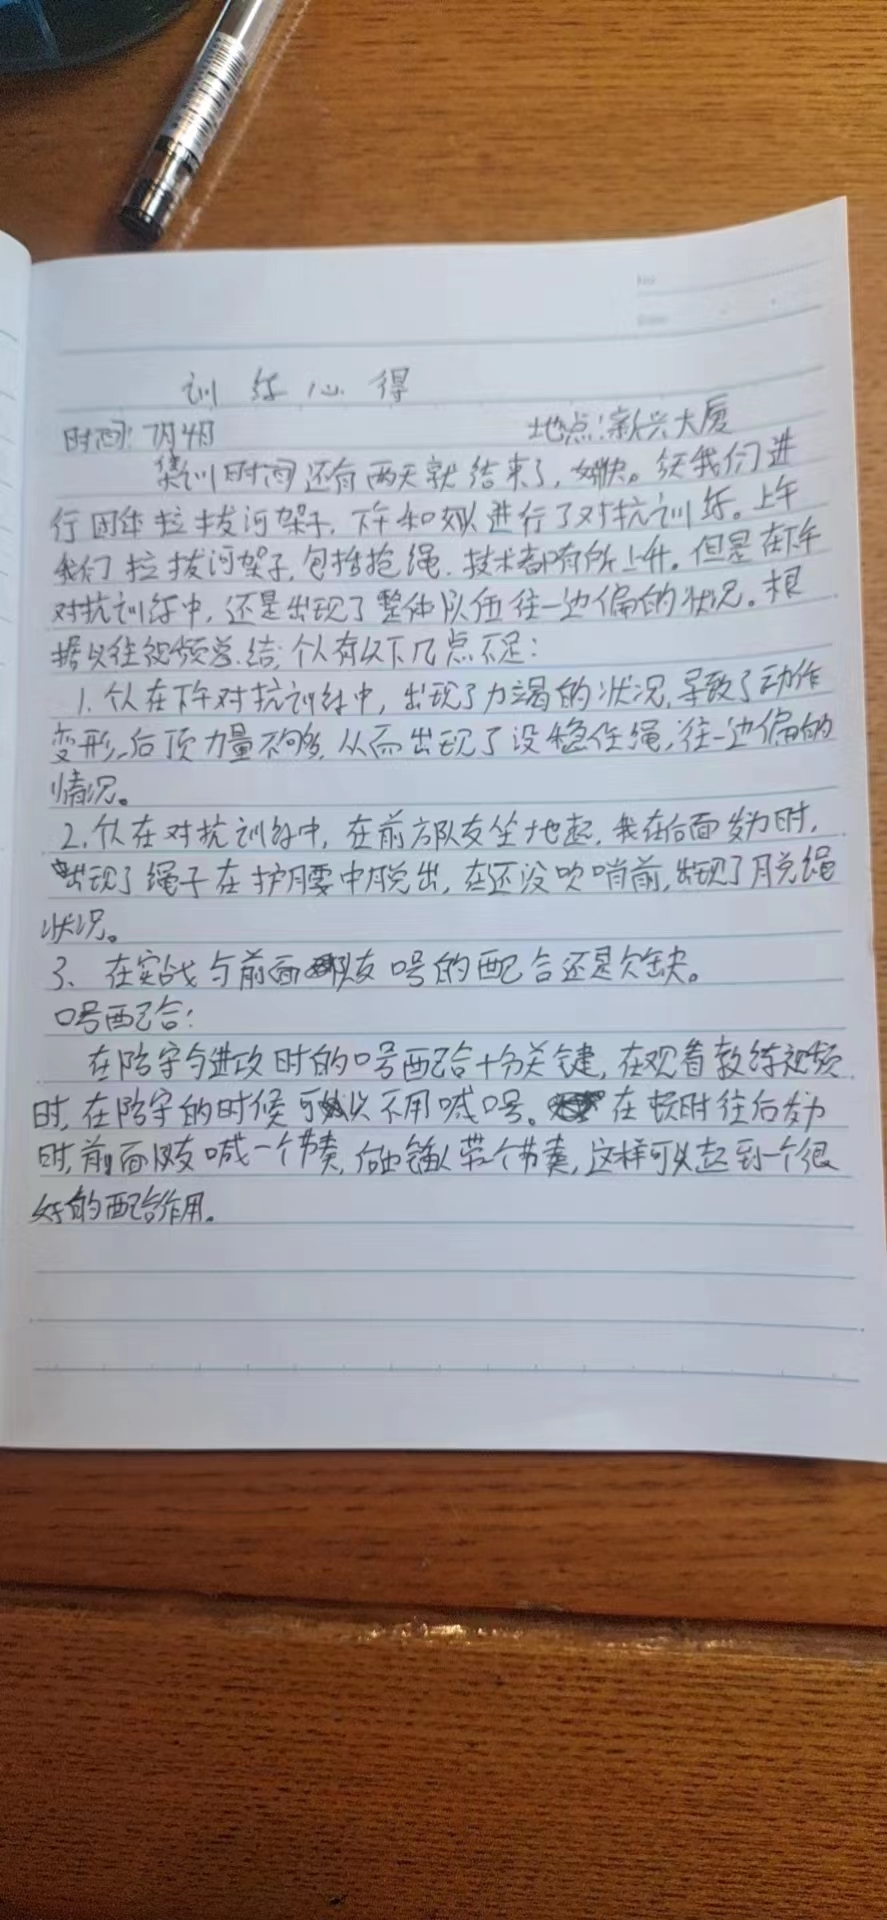 训练心得
时间:7月4日 地点:新兴大厦
集训时间还有两天就结束了,好快。今天我们进
行团体拉拔河架子,下午和女队进行了对抗训练。上午
我们拉拔河架子,包括抢绳,技术都有所上升。但是在下午
对抗训练中,还是出现了整体队伍往一边偏的状况。根
据以往视频总结,个人有以下几点不足:
1.个人在下午对抗训练中,出现了力竭的状况,导致了动作
变形,后顶力量不够,从而出现了没稳住绳,往一边偏的
情况。
2.个人在对抗训练中,在前方队友坐地起,我在后面发力时,
出现了绳子在护腰中脱出,在还没吹哨前,出现了脱绳
状况。
3、在实战与前面队友口号的配合还是欠缺。
口号配合:
在防守与进攻时的口号配合十分关键,在观看教练视频
时,在防守的时候可以不用喊口号。在顿时往后发力
时,前面队友喊一个节奏,后边锚人带个节奏,这样可以起到一个很
好的配合作用。